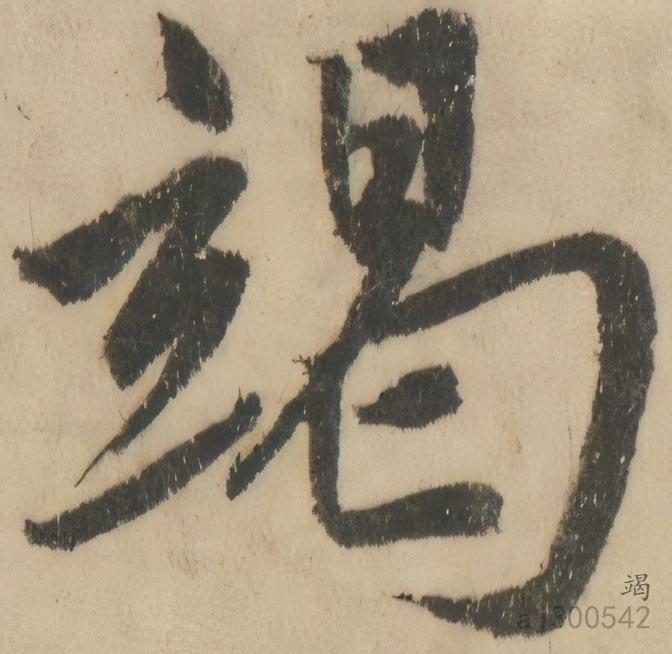 竭
竭
aj300542